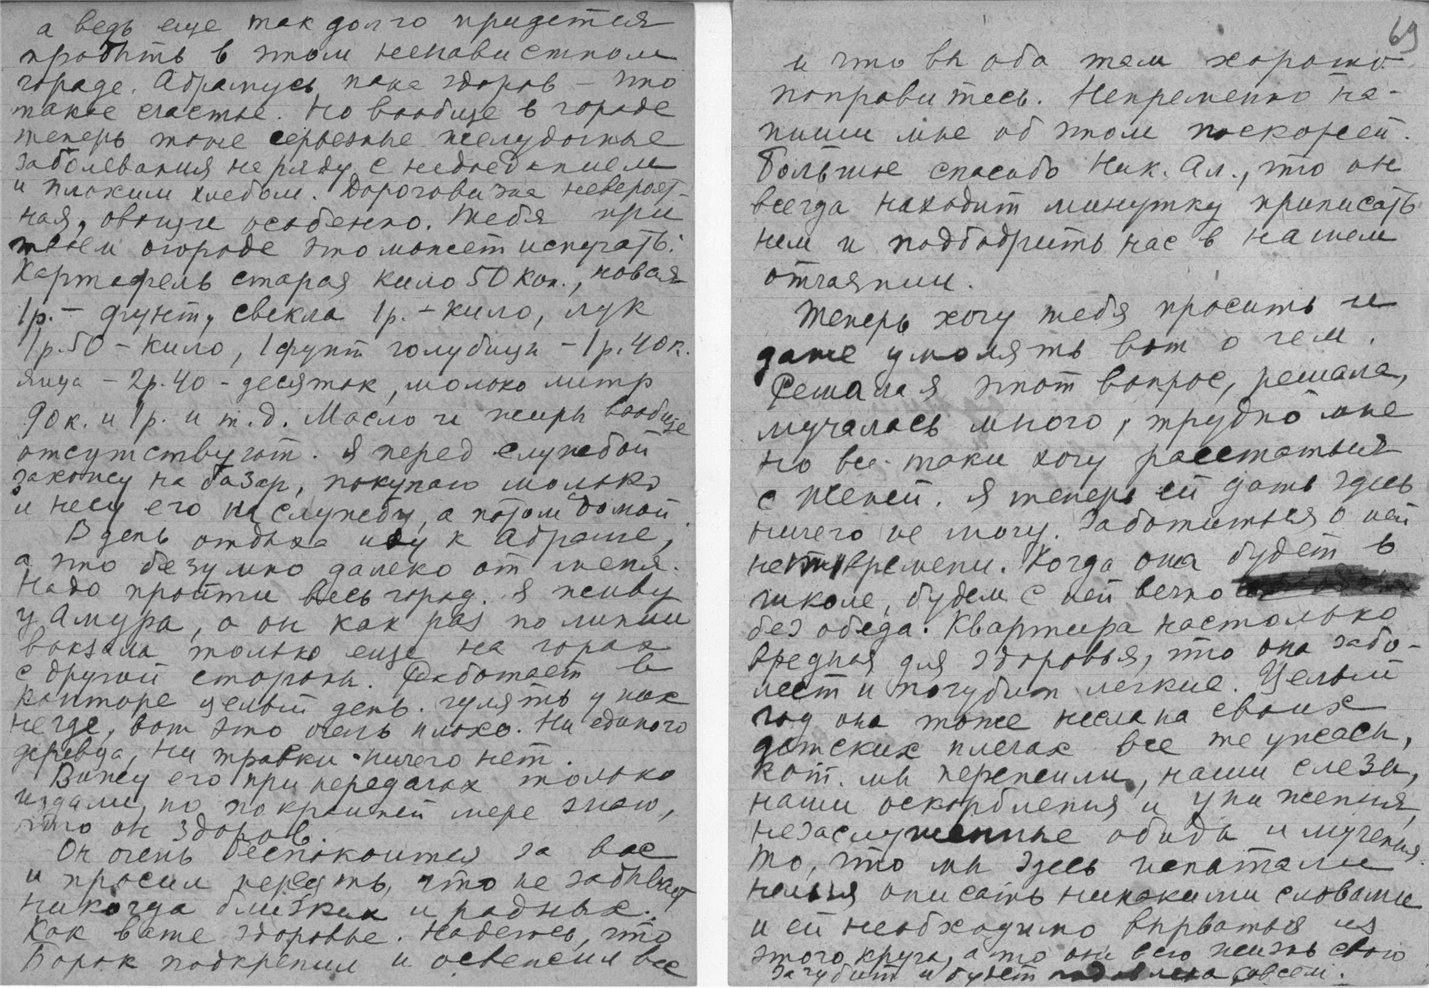 а ведь еще так долго придется
пробыть в этом ненавистном
городе. Абрамусь пока здоров – это
такое счастье. Но вообще в городе
теперь тоже серьезные желудочные
заболевания наряду с недоеданием
и плохим хлебом. Дороговизна невероят-
ная, овощи особенно. Тебя при
твоем огороде это может испугать:
Картофель старая кило 50 коп., новая
1р. – фунт, свекла 1р. – кило, лук
1р.50 – кило, 1 фунт голубицы – 1р.40к.
яйца – 2р.40 – десяток, молоко литр
90к. и 1р. и т.д. Масло и жиры вообще
отсутствуют. Я перед службой
захожу на базар, покупаю молоко
и несу его на службу, а потом домой.
В день отдыха иду к Абраше,
а это безумно далеко от меня.
Надо пройти весь город. Я живу
у Амура, а он как раз по линии
вокзала только еще на горах
с другой стороны. Работает в
конторе целый день. Гулять у них
негде, вот это очень плохо. Ни единого
деревца, ни травки – ничего нет.
Вижу его при передачах только
издали, но по крайней мере знаю,
что он здоров.
Он очень беспокоится за вас
и просил передать, что не забывает
никогда близких и родных.
Как ваше здоровье. Надеюсь, что
Борок подкрепил и освежил вас
69
и что вы оба там хорошо
поправитесь. Непременно на-
пиши мне об этом поскорей.
Большое спасибо Ник. Ал., что он
всегда находит минутку приписать
нам и подбодрить нас в нашем
отчаянии.
Теперь хочу тебя просить и
даже умолять вот о чем.
Решала я этот вопрос, решала,
мучалась много, трудно мне
но все-таки хочу расстаться
с Женей. Я теперь ей дать здесь
ничего не могу. Заботиться о ней
нет времени. Когда она будет в
школе, будем с ней вечно
без обеда. Квартира настолько
вредная для здоровья, что она забо-
леет и погубит легкие. Целый
год она тоже несла на своих
детских плечах все те ужасы,
кот. мы пережили, наши слезы,
наши оскорбления и унижения,
незаслуженные обиды и мучения.
То, что мы здесь испытали
нельзя описать никакими словами
и ей необходимо вырваться из
этого круга, а то она всю жизнь свою
загубит и будет подавлена совсем.